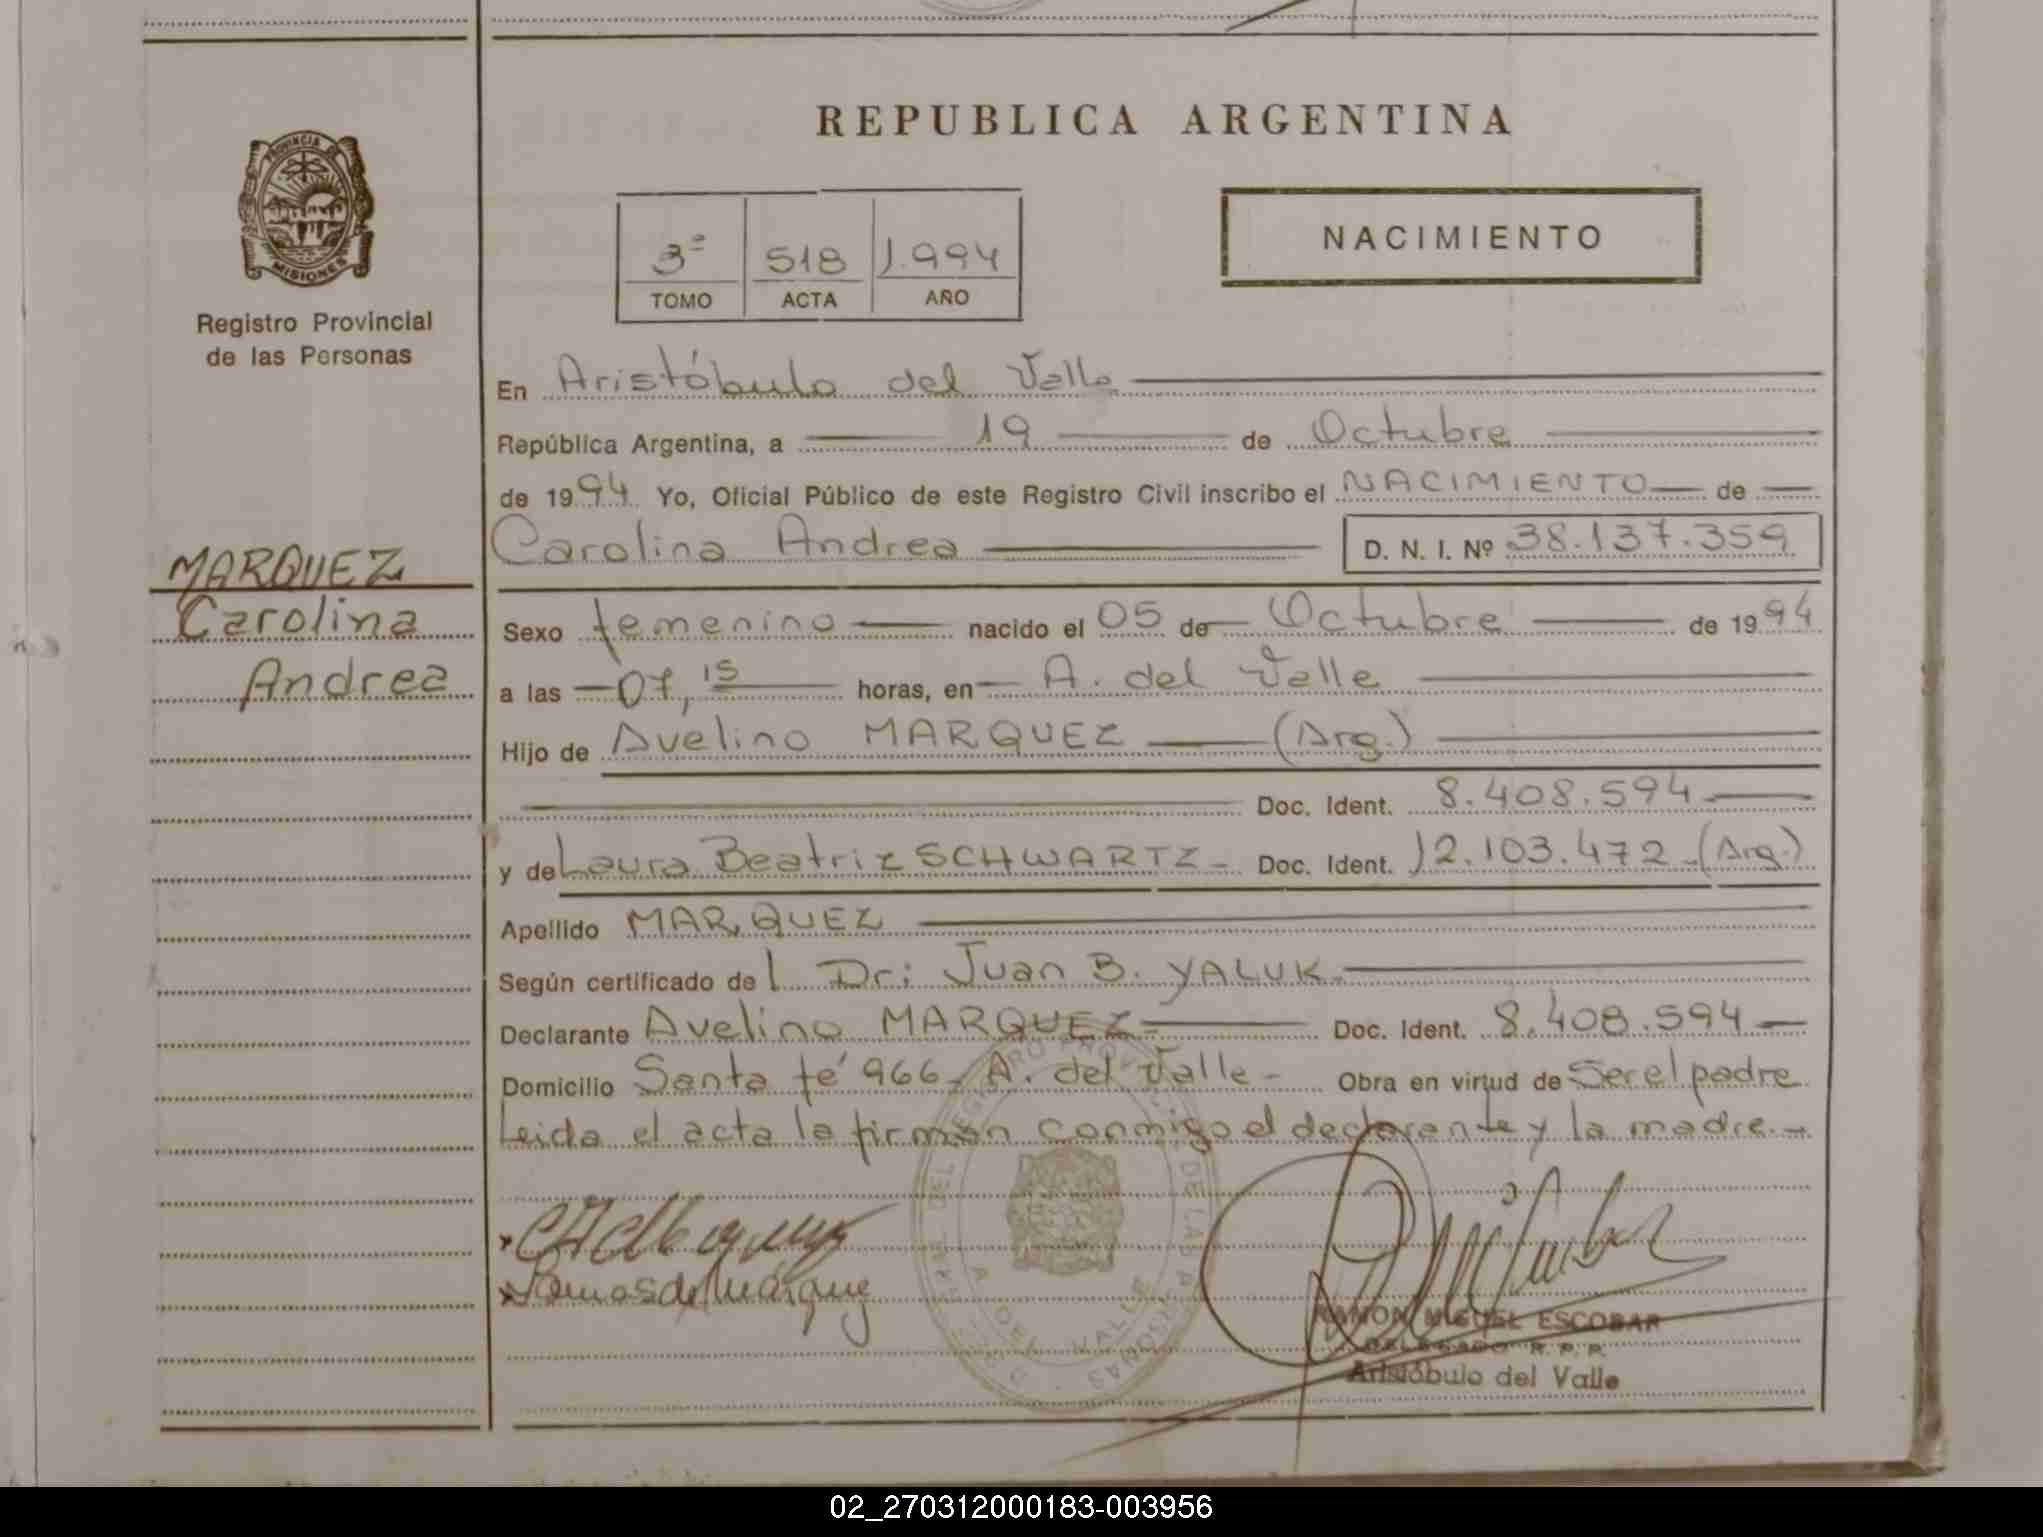 REPUBLICA ARGENTINA
PROVINCIA DE
MISIONES
Registro Provincial
de las Personas
3º 518 1.994
TOMO ACTA AÑO
NACIMIENTO
En Aristóbulo del Valle
República Argentina, a 19 de Octubre
de 1994 Yo, Oficial Público de este Registro Civil inscribo el NACIMIENTO de
Carolina Andrea D. N. I. Nº 38.137.359
MARQUEZ
Carolina
Andrea
Sexo femenino nacido el 05 de Octubre de 1994
a las 07,15 horas, en A. del Valle
Hijo de Avelino MARQUEZ (Arg.)
Doc. Ident. 8.408.594
y de Laura Beatriz SCHWARTZ - Doc. Ident. 12.103.472 - (Arg.)
Apellido MARQUEZ
Según certificado del Dr: Juan B. YALUK.
Declarante Avelino MARQUEZ Doc. Ident. 8.408.594
Domicilio Santa fé 966 - A. del Valle - Obra en virtud de Ser el padre
Leida el acta la firman conmigo el declarante y la madre. -
RAMON MIGUEL ESCOBAR
DELEGADO R. P. P.
Aristóbulo del Valle
02_270312000183-003956